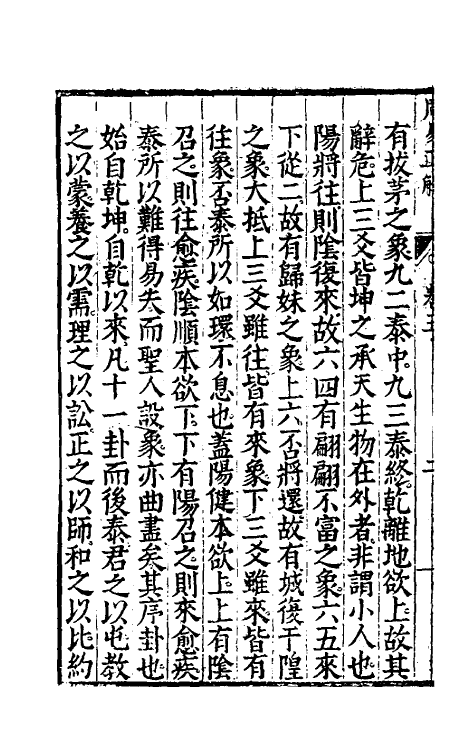 有拔茅之象九二泰中九三泰終乾離地欲上故其
辭危上三爻皆坤之承天生物在外者非謂小人也
陽將往則陰復來故六四有翩翩不富之象六五來
下從二故有歸妹之象上六否將還故有城復于隍
之象大抵上三爻雖往皆有來象下三爻雖來皆有
往象否泰所以如環不息也蓋陽健本欲上上有陰
召之則往愈疾陰順本欲下下有陽召之則來愈疾
泰所以難得易失而聖人設象亦曲盡矣其序卦也
始自乾坤自乾以來凡十一卦而後泰君之以屯教
之以蒙養之以需理之以訟正之以師和之以比約